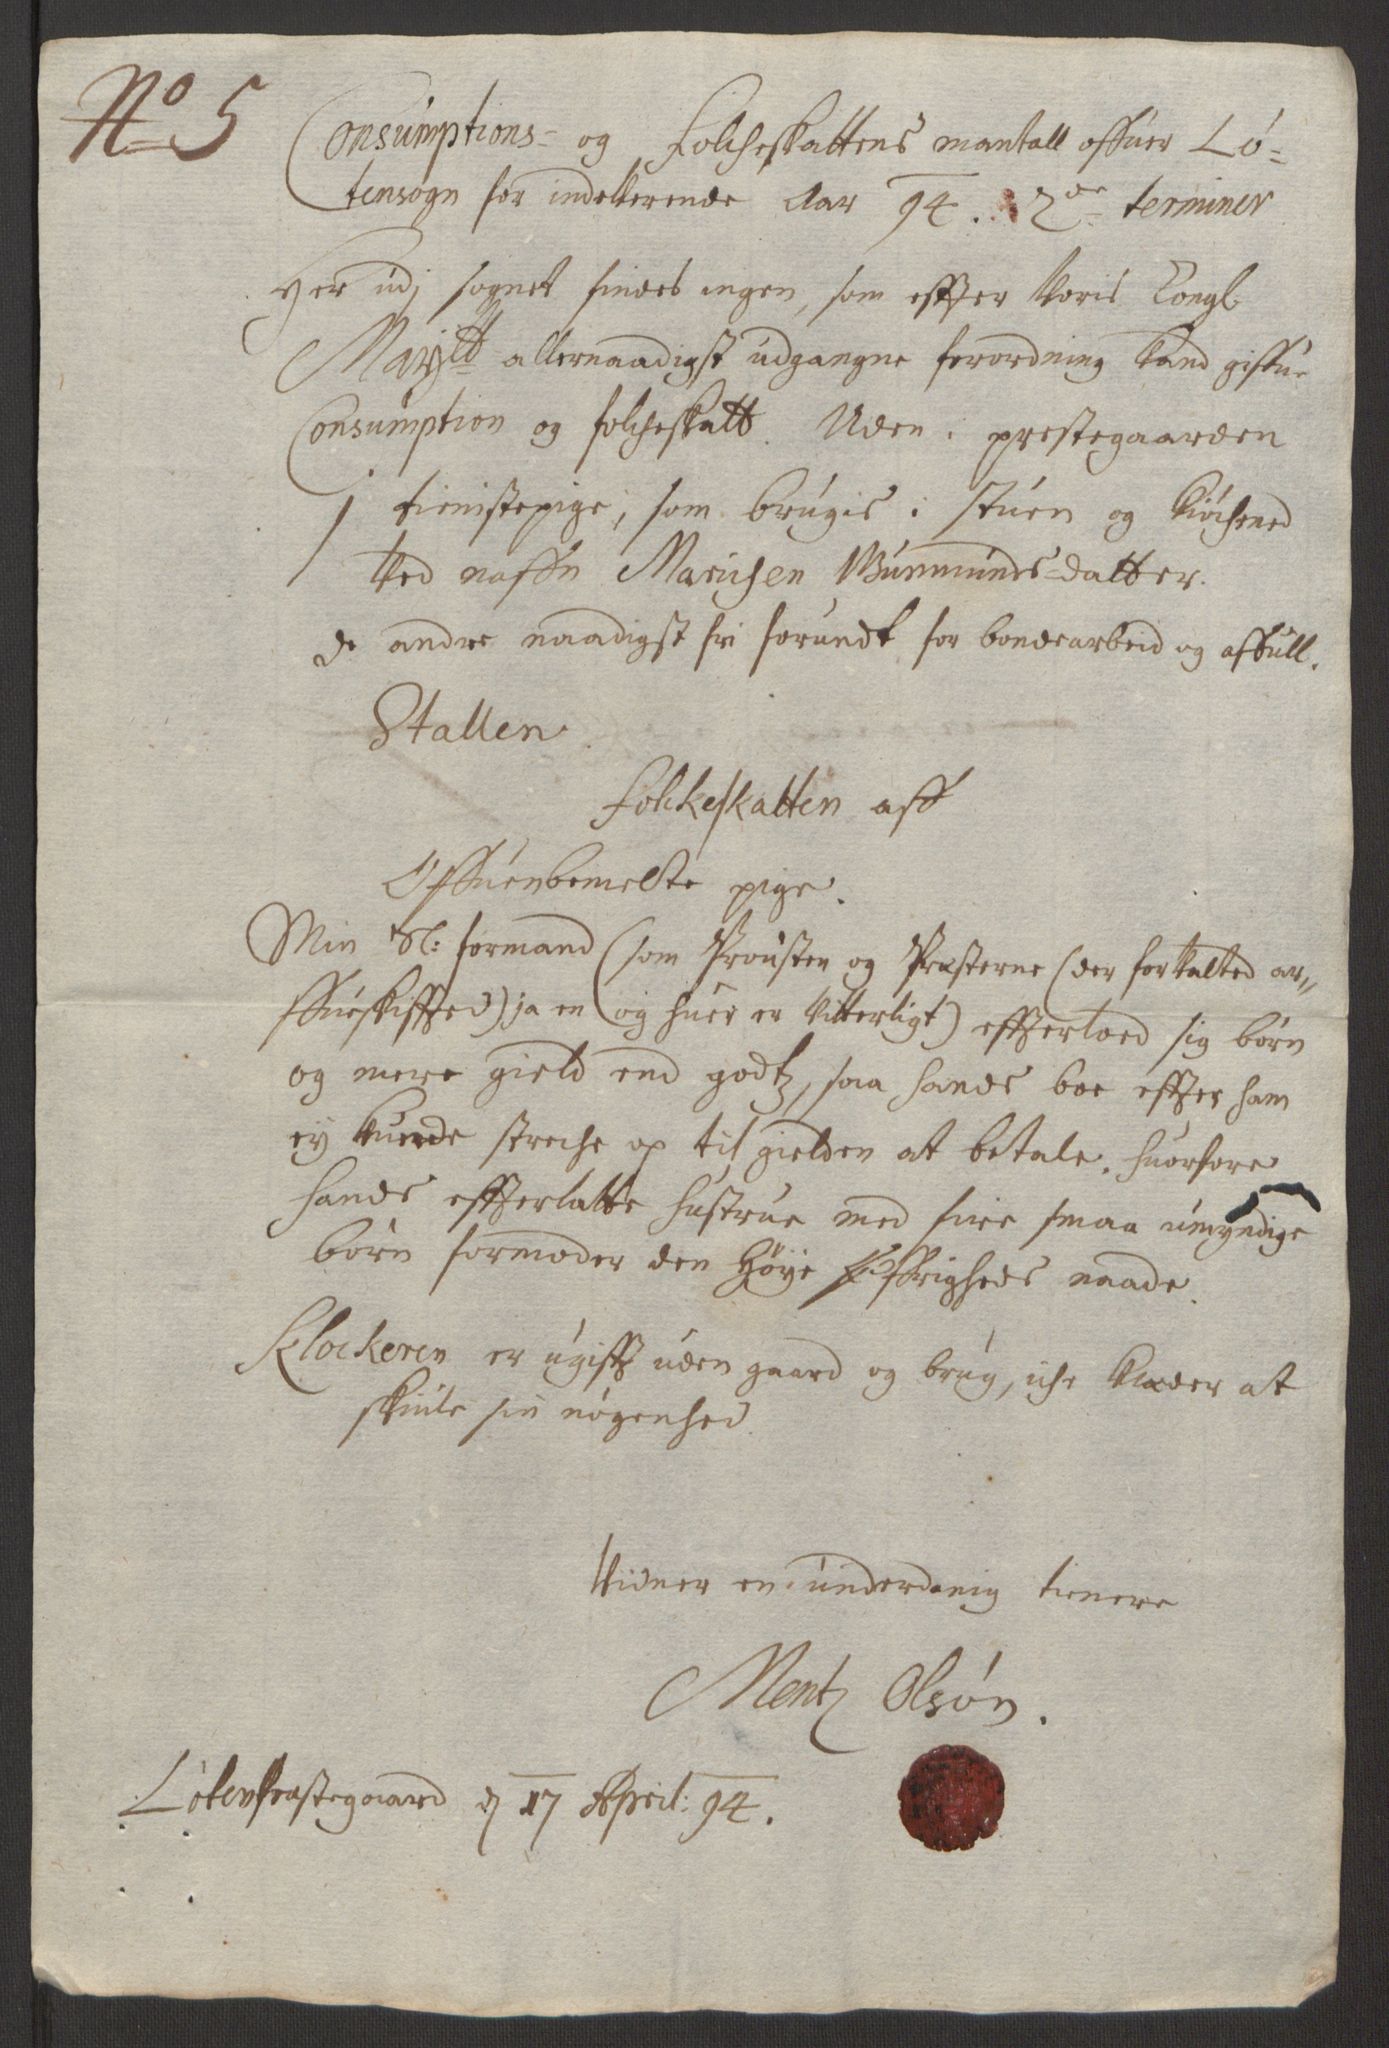 No 5
Consumptions- og Folcheskattens mantall offuer Lø-
tensogn for indeverende Aar 94. 2de terminer
Her udj sognet findes ingen, som effter Voris Kongl
Maijtt allernaadigst udgangne forordning kand giffue
Consumption og folcheskatt. Uden i prestegaarden
1 tienistepige, som brugis i stuen og kiøchened
ved naffn Marichen Gunmunds-datter.
de andre naadigst fri forundt for bondearbeid og affull.
Stallen.
Folckeskatten aff
Offuenbemelte pige.
Min Sl: formand (som Prousten og Præsterne (der forvalted ar,,
ffueskiffted) ja en og huer er vitterligt) effterloed sig børn
og mere gield end godtz, saa hands boe effter ham
ey kunde streche op til gielden at betale, huorfore
hands effterlatte hustrue med fire smaa umyndige
børn formoder den Høye Øffrigheds naade.
Klockeren er ugifft uden gaard og brug, iche klæder at
skiule sin nøgenhed.
Vidner en underdanig tienere
Mentz Olsøn.
Løtenpræstegaard d 17 April: 94.